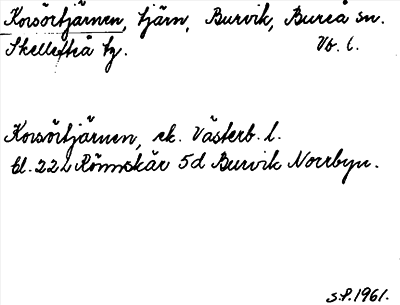 Korsörtjärnen, tjärn, Burvik, Bureå sn.
Skellefteå tg. Vb. l.
Korsörtjärnen, ek. Västerb. l.
bl. 22L Rönnskär 5d Burvik Norrbyn.
S.P. 1961.